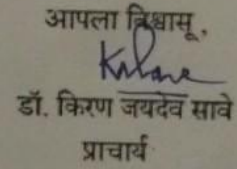 आपला विश्वासू,
डॉ. किरण जयदेव सावे
प्राचार्य